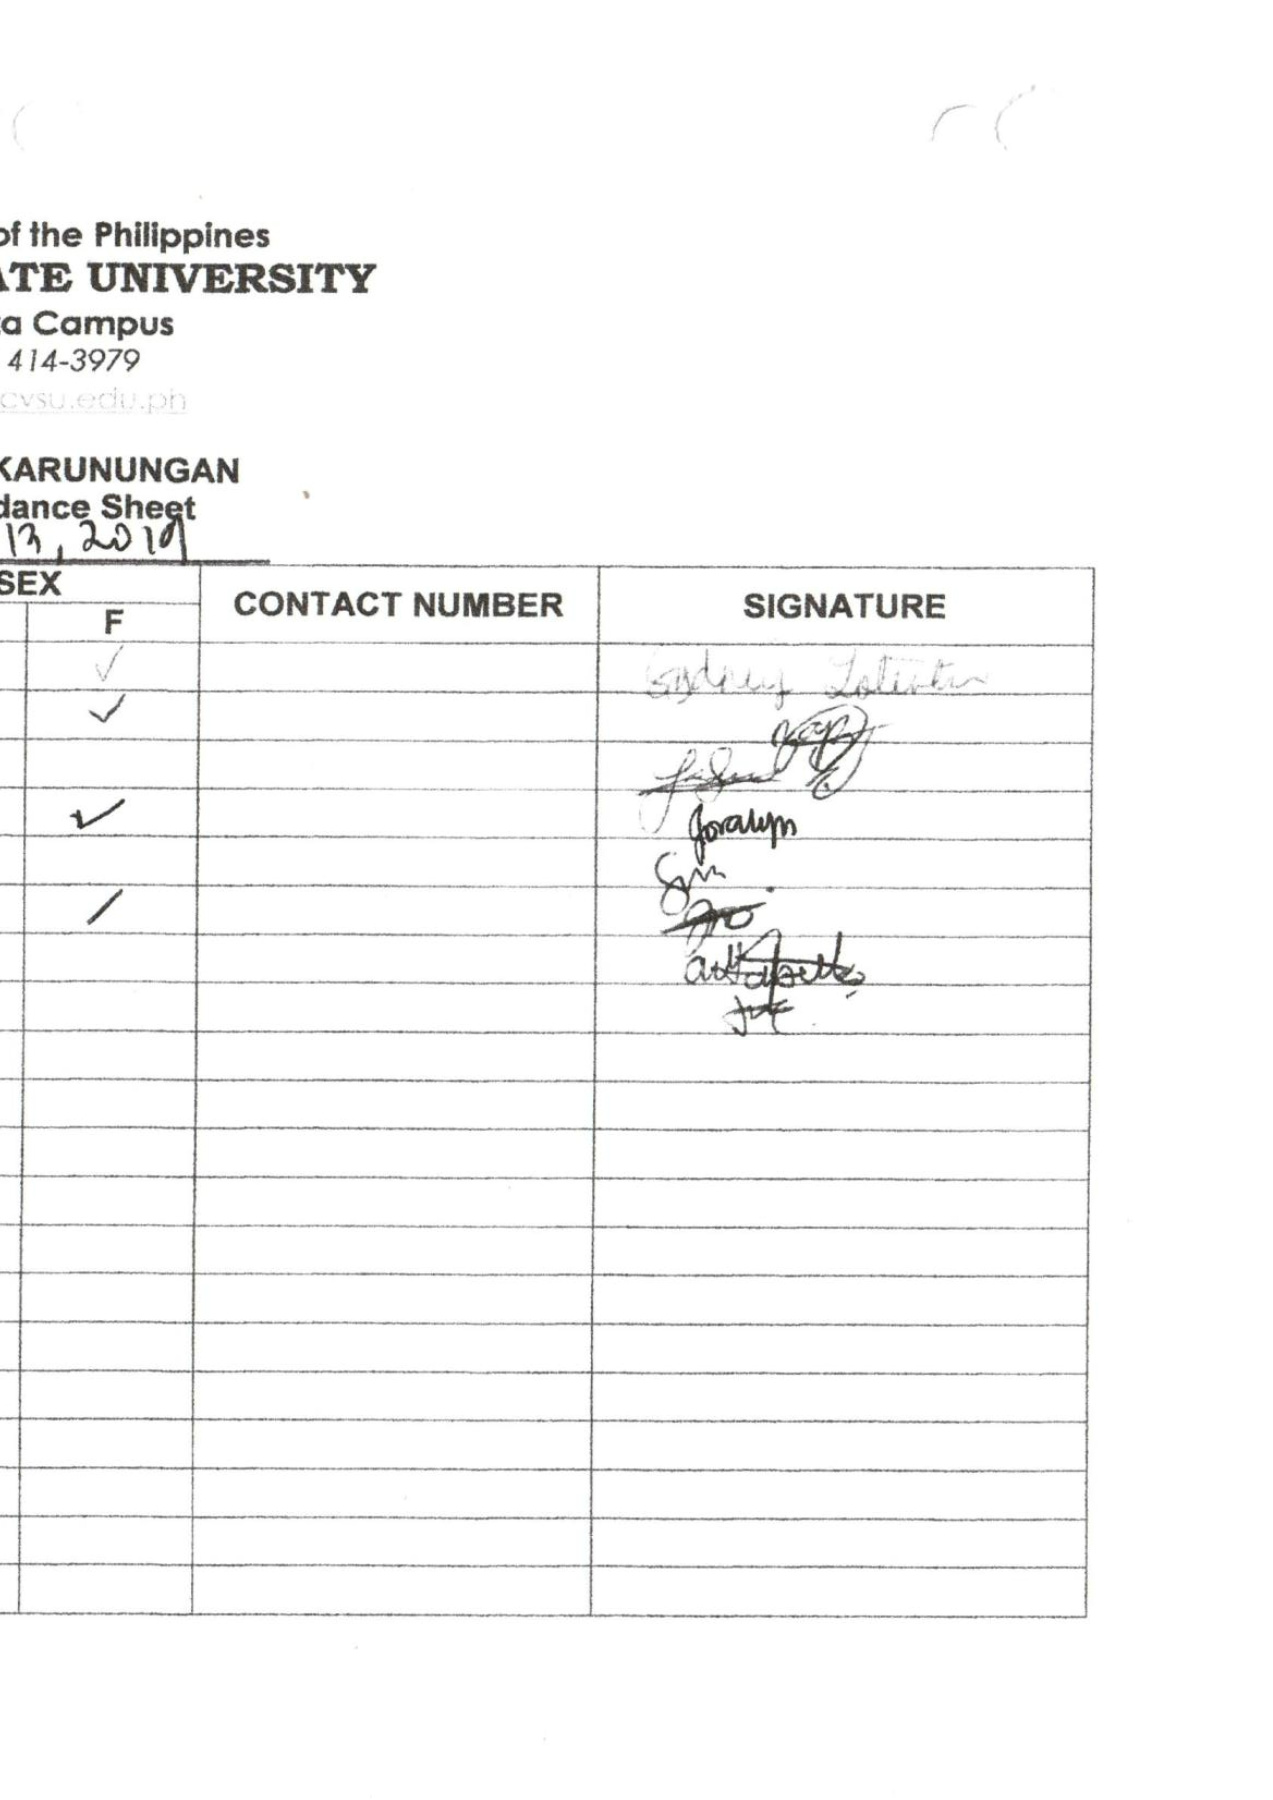 of the Philippines
ATE UNIVERSITY
a Campus
414-3979
cvsu.edu.ph
KARUNUNGAN
dance Sheet
13, 2019
SEX
F
CONTACT NUMBER
SIGNATURE
Sydney
Joralyn